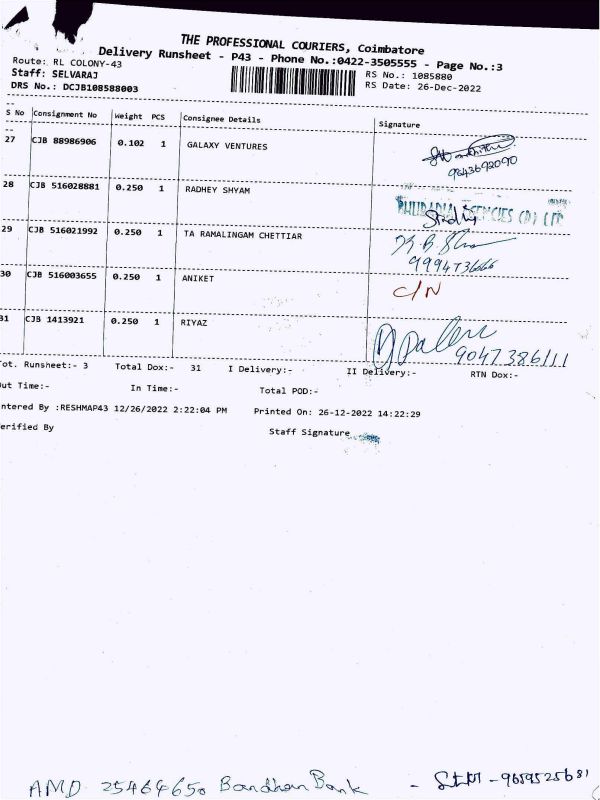 THE PROFESSIONAL COURIERS, Coimbatore
Delivery Runsheet - P43 - Phone No.:0422-3505555 - Page No.:3
Route: RL COLONY-43
RS No.: 1085880
Staff: SELVARAJ
RS Date: 26-Dec-2022
DRS No.: DCJB108588003
S No Consignment No Weight PCS Consignee Details Signature
27 CJB 88986906 0.102 1 GALAXY VENTURES
9643692090
28 CJB 516028881 0.250 1 RADHEY SHYAM
29 CJB 516021992 0.250 1 TA RAMALINGAM CHETTIAR
30 CJB 516003655 0.250 1 ANIKET C/N
31 CJB 1413921 0.250 1 RIYAZ
9047386111
ot. Runsheet:- 3 Total Dox:- 31 I Delivery:- II Delivery:- RTN Dox:-
ut Time:- In Time:- Total POD:-
ntered By :RESHMAP43 12/26/2022 2:22:04 PM Printed On: 26-12-2022 14:22:29
erified By Staff Signature
AMD 25464650 Bandhan Bank - 9659525681